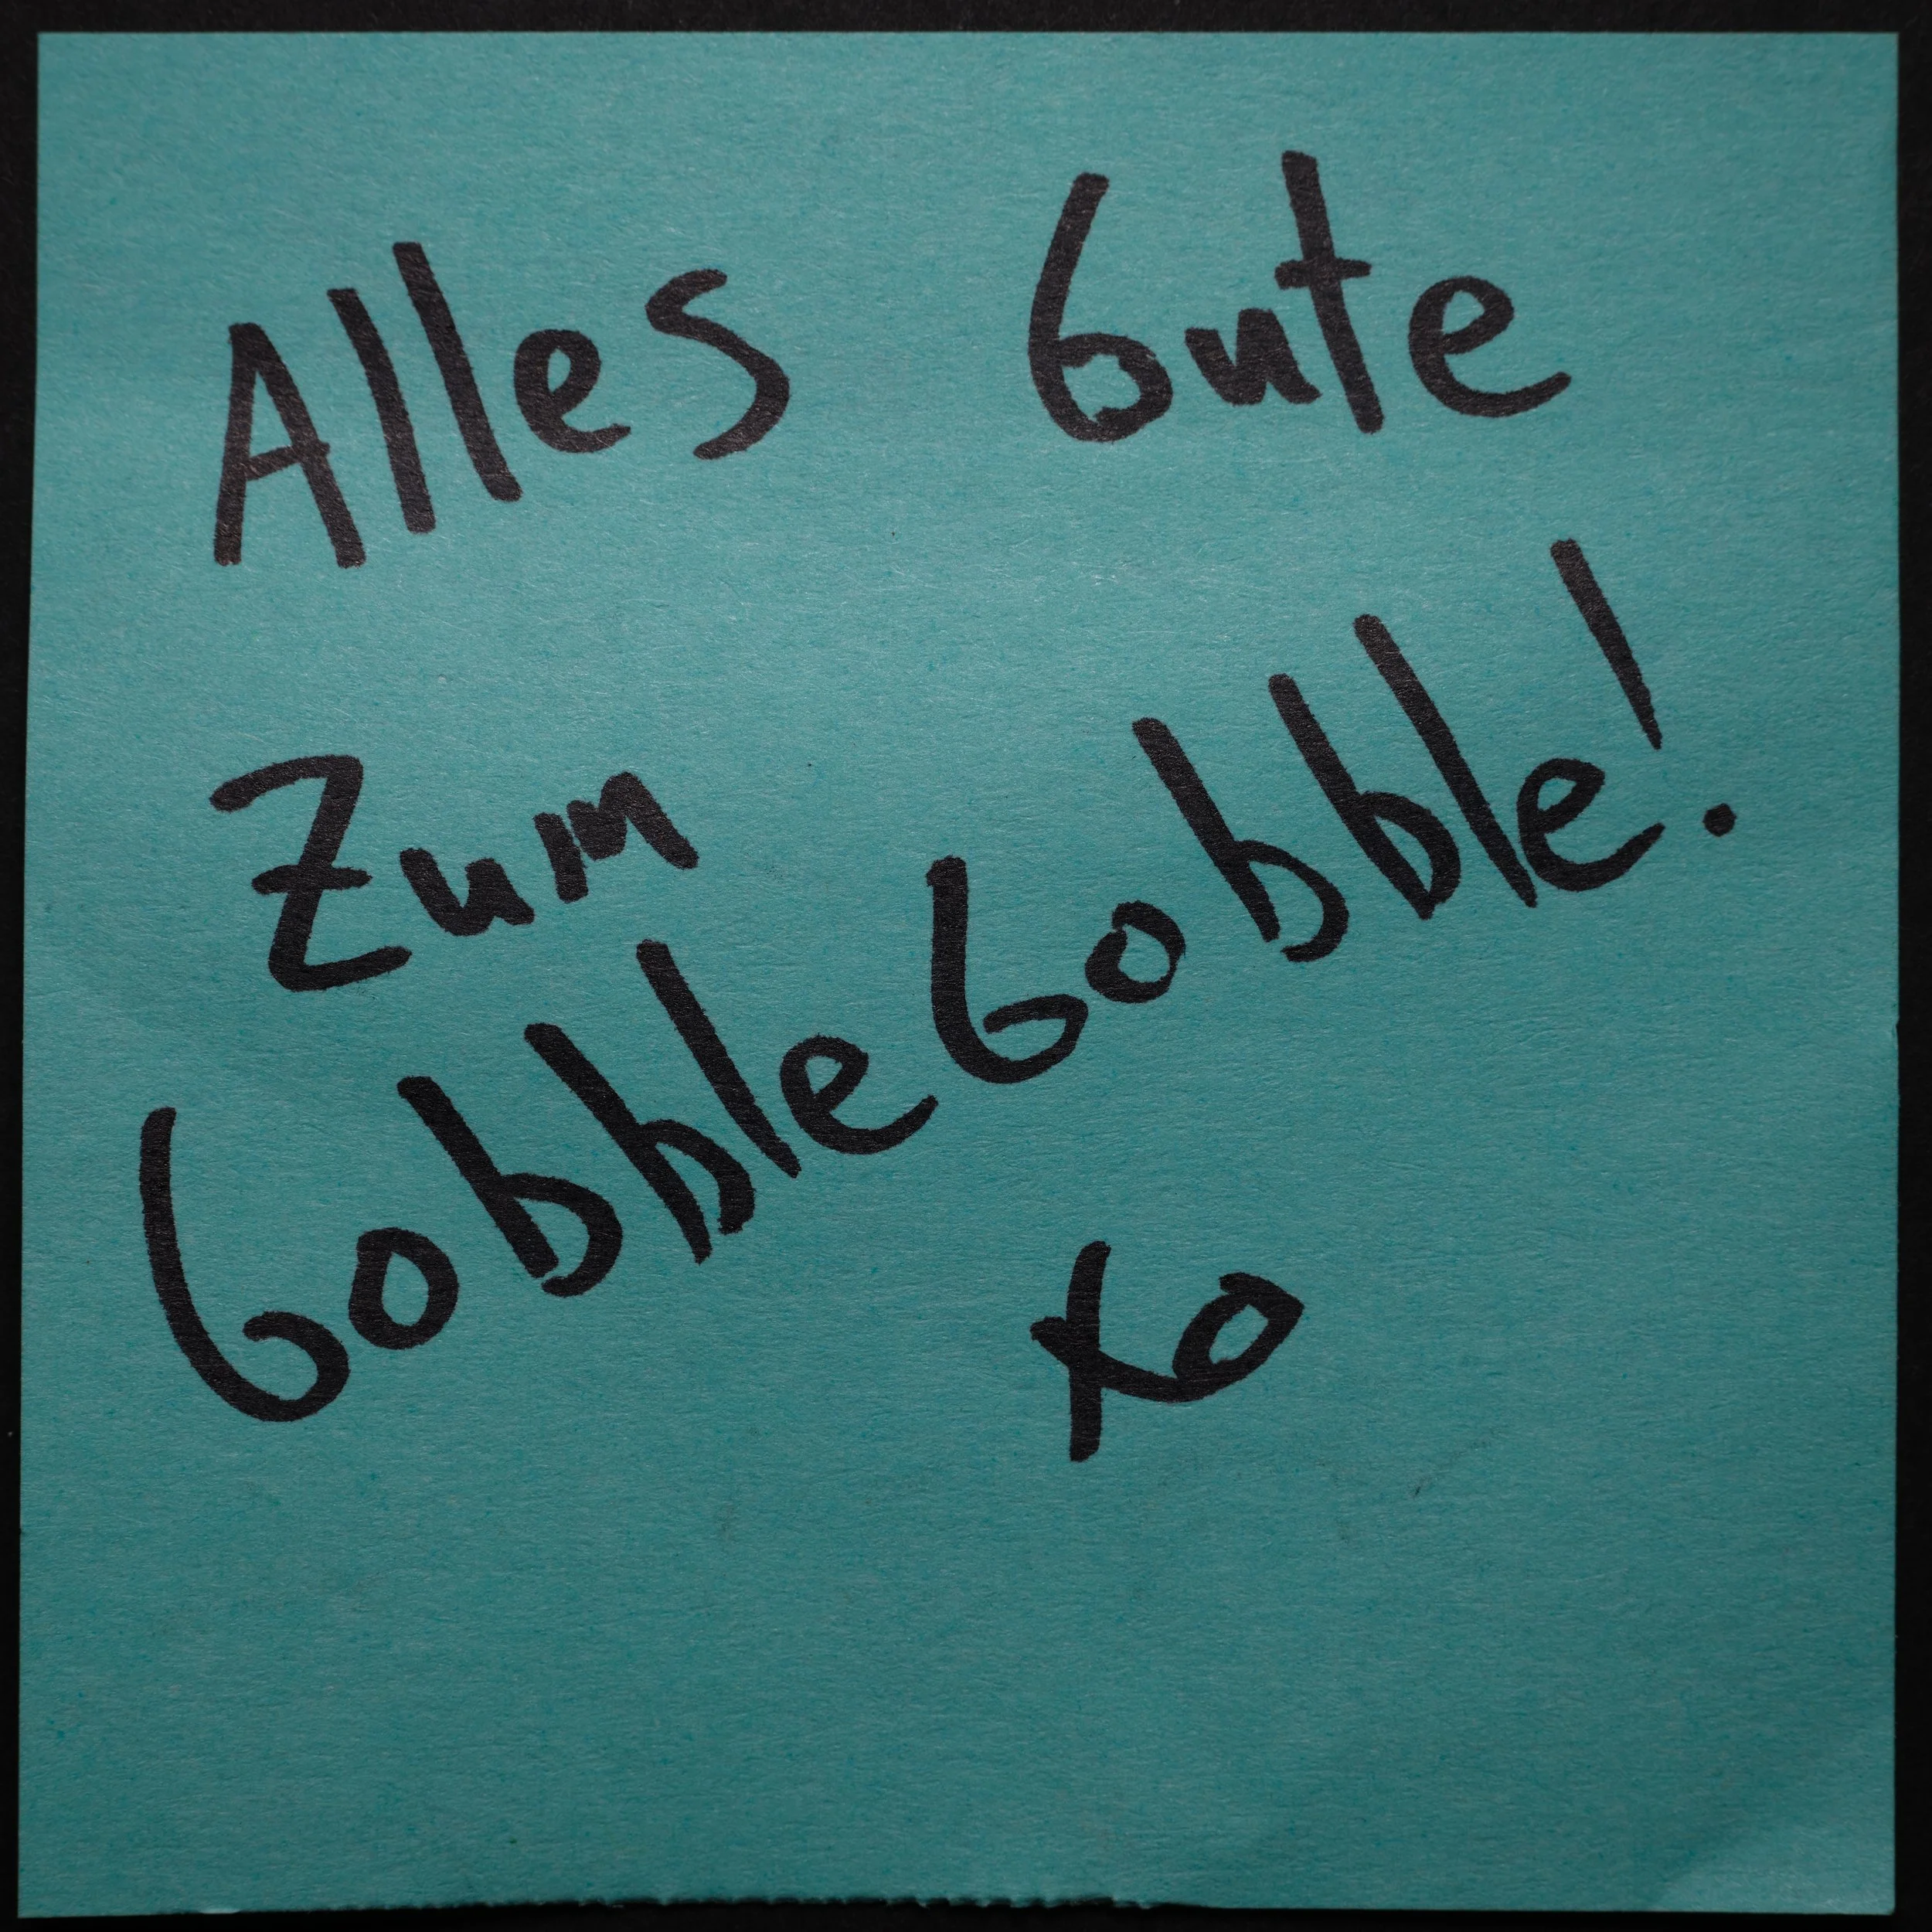 Alles Gute
Zum
GobbleGobble!
xo